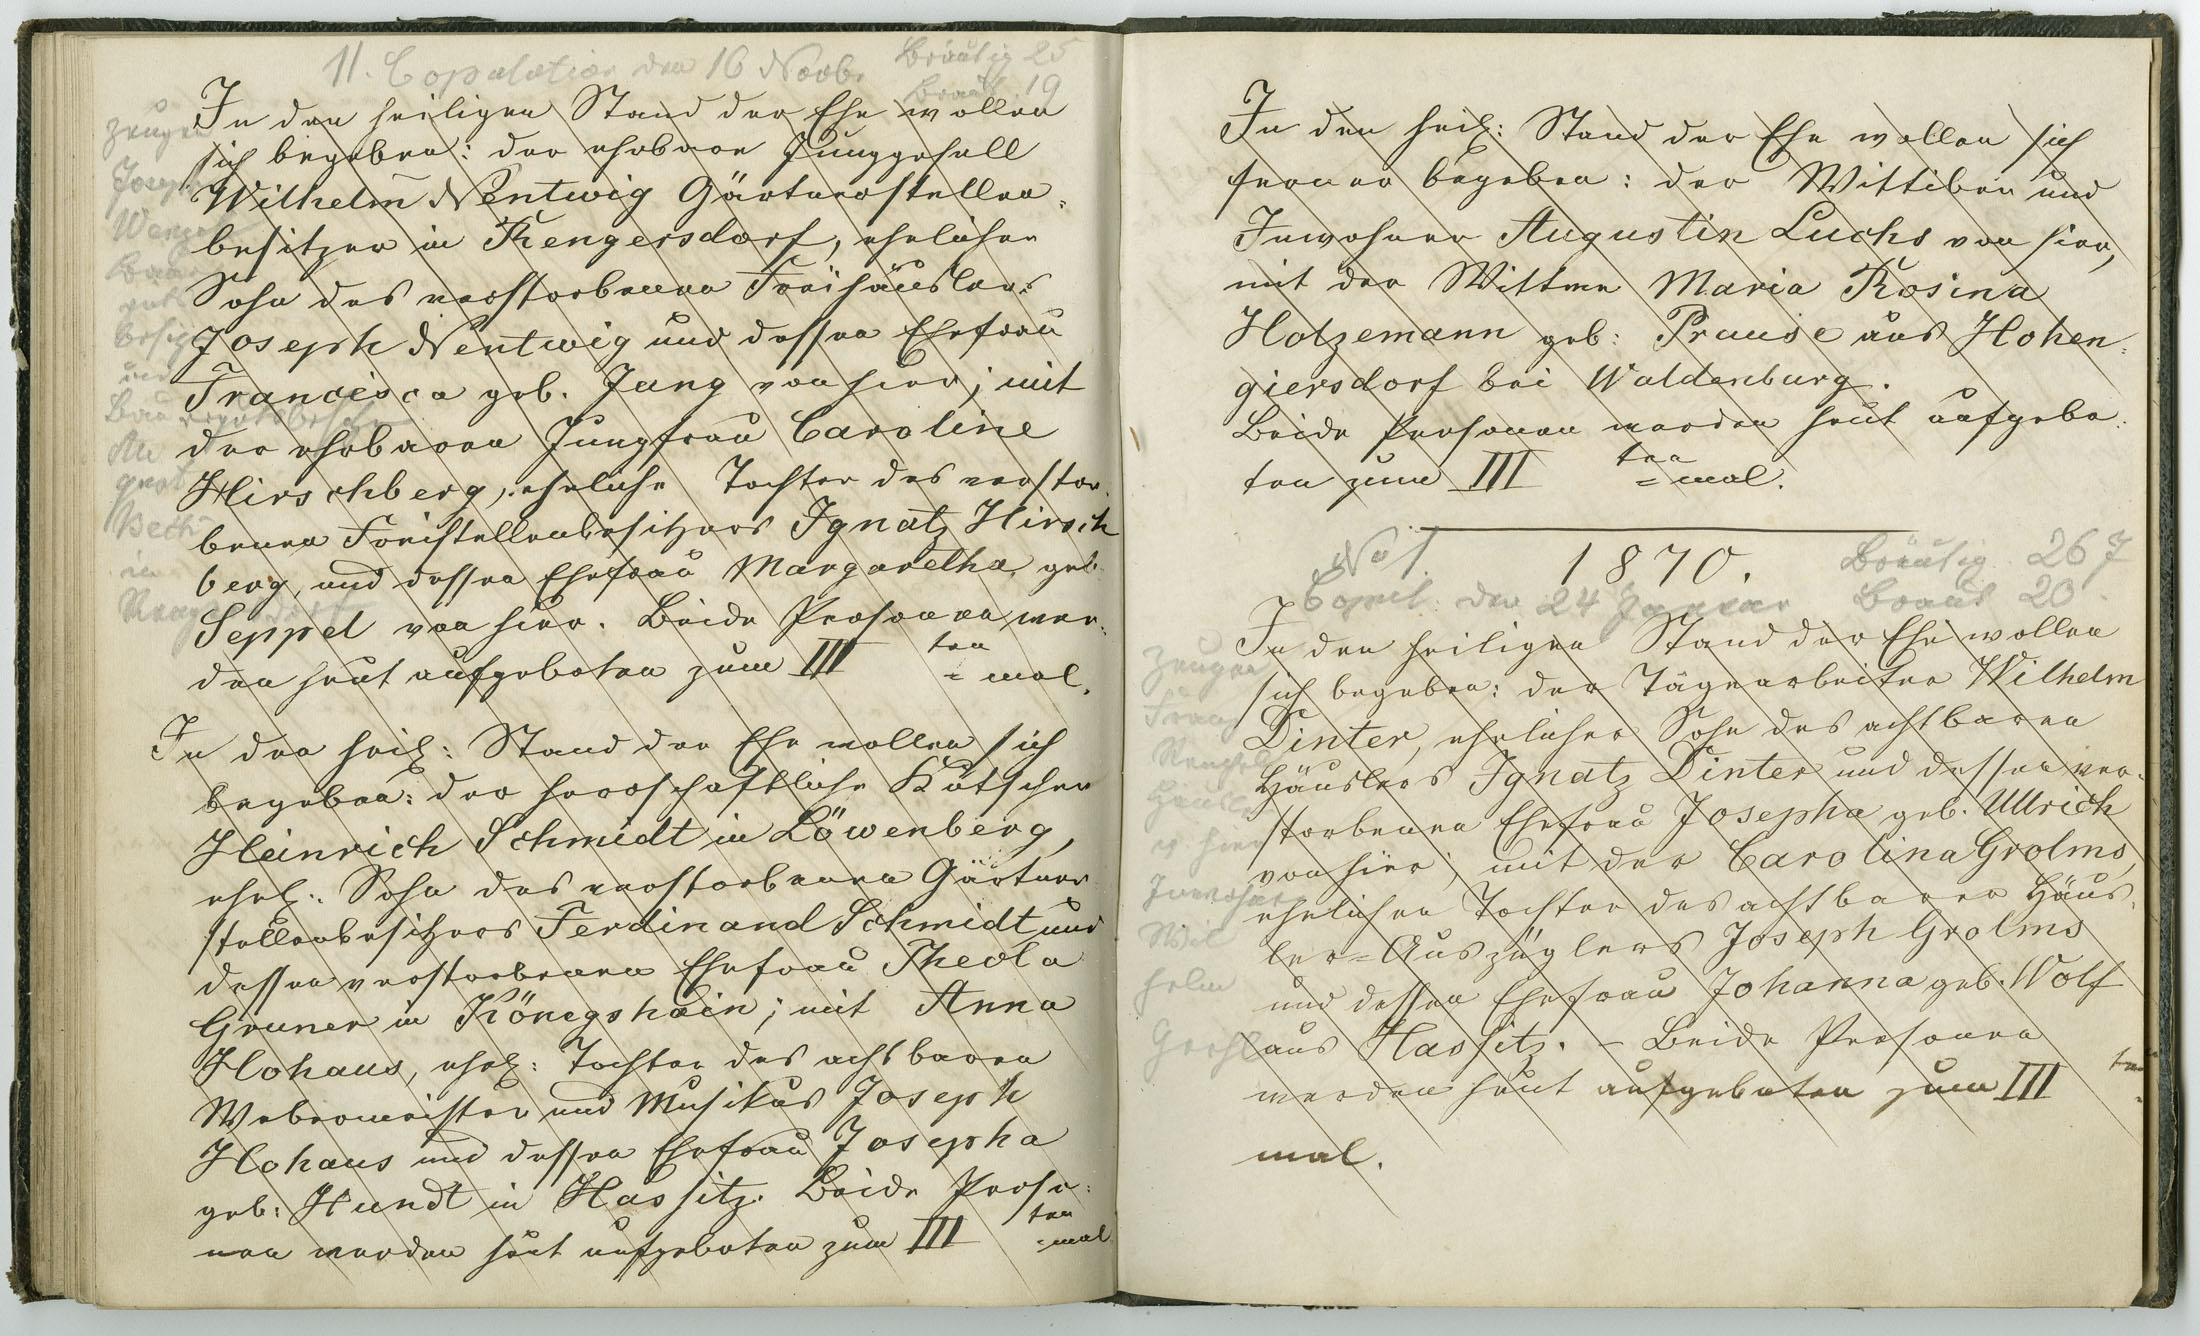 11. Copulation den 16 Novbr Bräutig 25
Braut 19
In den heiligen Stand der Ehe wollen
sich begeben: der ehrbare Junggesell
Wilhelm Nentwig Gärtnerstellen-
besitzer in Rengersdorf, ehelicher
Sohn des verstorbenen Freihäuslers
Joseph Nentwig und dessen Ehefrau
Francisca geb. Jung von hier; mit
der ehrbaren Jungfrau Caroline
Hirschberg, eheliche Tochter des verstor-
benen Freistellenbesitzers Ignatz Hirsch
berg, und dessen Ehefrau Margaretha geb.
Seppel von hier. Beide Personen wer-
den heut aufgeboten zum III ten
= mal.
Zeugen
Joseph
und
in
In den heil: Stand der Ehe wollen sich
begeben: der herrschaftliche Kutscher
Heinrich Schmidt in Löwenberg,
ehel: Sohn des verstorbenen Gärtner
stellenbesitzers Ferdinand Schmidt und
dessen verstorbenen Ehefrau Theola
Gruner in Königshain; mit Anna
Hohaus, ehel: Tochter des achtbaren
Webermeister und Musikus Joseph
Hohaus und dessen Ehefrau Josepha
geb: Hundt in Hassitz. Beide Perso-
nen werden heut aufgeboten zum III ten
=mal
In den heil: Stand der Ehe wollen sich
ferner begeben: der Wittiber und
Inwohner Augustin Luchs von hier,
mit der Wittwe Maria Rosina
Holzemann geb: Prause aus Hohen-
giersdorf bei Waldenburg.
Beide Personen werden heut aufgebo-
ten zum III ten
= mal.
No 1. 1870. Bräutig. 26 J
Copul. den 24 Januar Braut 20.
In den heiligen Stand der Ehe wollen
sich begeben: der Tagearbeiter Wilhelm
Dinter, ehelicher Sohn des achtbaren
Häuslers Ignatz Dinter und dessen ver-
storbenen Ehefrau Josepha geb. Ullrich
von hier; mit der Carolina Grolms,
ehelichen Tochter des achtbaren Häus-
ler=Auszüglers Joseph Grolms
und dessen Ehefrau Johanna geb. Wolf
aus Hassitz. – Beide Personen
werden heut aufgeboten zum III ten
mal.
Zeugen
Franz
v. hier
Inwohner
Wil
helm